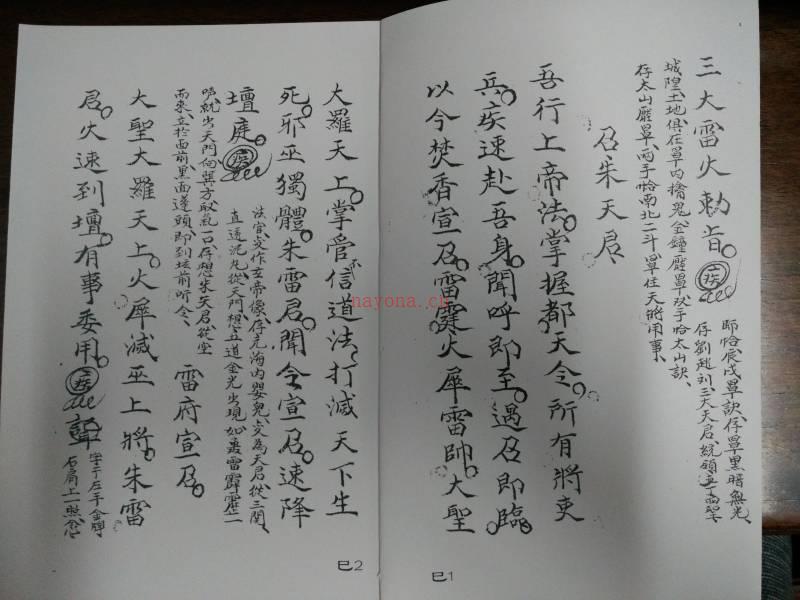 三大雷火勅旨。
師恰辰戌罩訣、存罩黑暗無光、
存劉趙列三大天君統領
城隍土地、俱在罩內擒鬼、金鐘壓罩、双手恰太山訣、
存太山壓罩、两手恰南北二斗、罩住天將用事、
召朱天君、
吾行上帝法。掌握都天令。所有將吏
兵。疾速赴吾身。聞呼即至。遇召即臨。
以今焚香宣召。雷霆火犀雷帥。大聖
大羅天上。掌管不信道法、打滅天下生
死。邪巫獨體。朱雷君。聞令宣召。速降
壇庭。
法官変作玄帝像、存 海内嬰兒、変為天君、從三関、
直透泥丸、從天門、想五道金光出現、如 雷霹靂一
响、就出天門向巽方取炁一口、存想朱天君、從空
而來、立於面前、黑面蓬頭、即到坛前听令、
雷府宣召。
大聖大羅天上。火犀滅巫上將。朱雷
君。火速到壇。有事委用。
字于左手金牌
右肩上一照念
巳1
巳2
nayona.cn